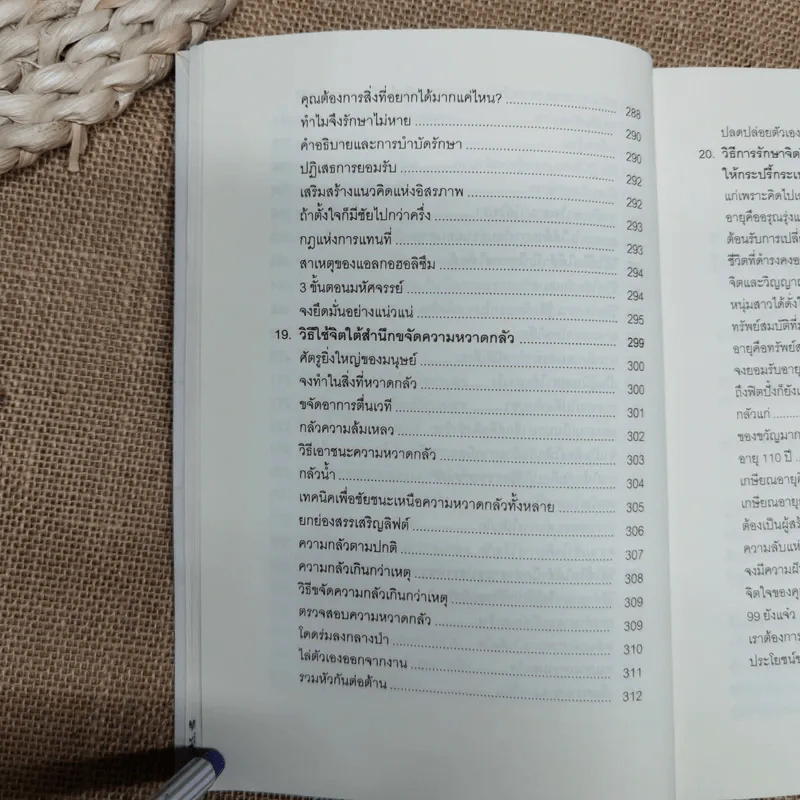 คุณต้องการสิ่งที่อยากได้มากแค่ไหน? 288
ทำไมจึงรักษาไม่หาย 290
คำอธิบายและการบำบัดรักษา 290
ปฏิเสธการยอมรับ 292
เสริมสร้างแนวคิดแห่งอิสรภาพ 292
ถ้าตั้งใจก็มีชัยไปกว่าครึ่ง 293
กฎแห่งการแทนที่ 293
สาเหตุของแอลกอฮอลิซึม 294
3 ขั้นตอนมหัศจรรย์ 294
จงยึดมั่นอย่างแน่วแน่ 295
19. วิธีใช้จิตใต้สำนึกขจัดความหวาดกลัว 299
ศัตรูยิ่งใหญ่ของมนุษย์ 300
จงทำในสิ่งที่หวาดกลัว 300
ขจัดอาการตื่นเวที 301
กลัวความล้มเหลว 302
วิธีเอาชนะความหวาดกลัว 303
กลัวน้ำ 304
เทคนิคเพื่อชัยชนะเหนือความหวาดกลัวทั้งหลาย 305
ยกย่องสรรเสริญลิฟต์ 306
ความกลัวตามปกติ 307
ความกลัวเกินกว่าเหตุ 308
วิธีขจัดความกลัวเกินกว่าเหตุ 309
ตรวจสอบความหวาดกลัว 309
โดดร่มลงกลางป่า 310
ไล่ตัวเองออกจากงาน 311
รวมหัวกันต่อต้าน 312
ปลดปล่อยตัวเอง
20. วิธีการรักษาจิต
ให้กระปรี้กระเป
แก่เพราะคิดไปเ
อายุคืออรุณรุ่งแ
ต้อนรับการเปลี่
ชีวิตที่ดำรงคงอ
จิตและวิญญาณ
หนุ่มสาวได้ดั่งใ
ทรัพย์สมบัติที่ม
อายุคือทรัพย์ส
จงยอมรับอายุ
ถึงฟิตปั๋งก็ยังเ
กลัวแก่
ของขวัญมาก
อายุ 110 ปี
เกษียณอายุคื
เกษียณอายุ
ต้องเป็นผู้สร้
ความลับแห่
จงมีความฝั
จิตใจของคุ
99 ยังแจ๋ว
เราต้องการ
ประโยชน์ข